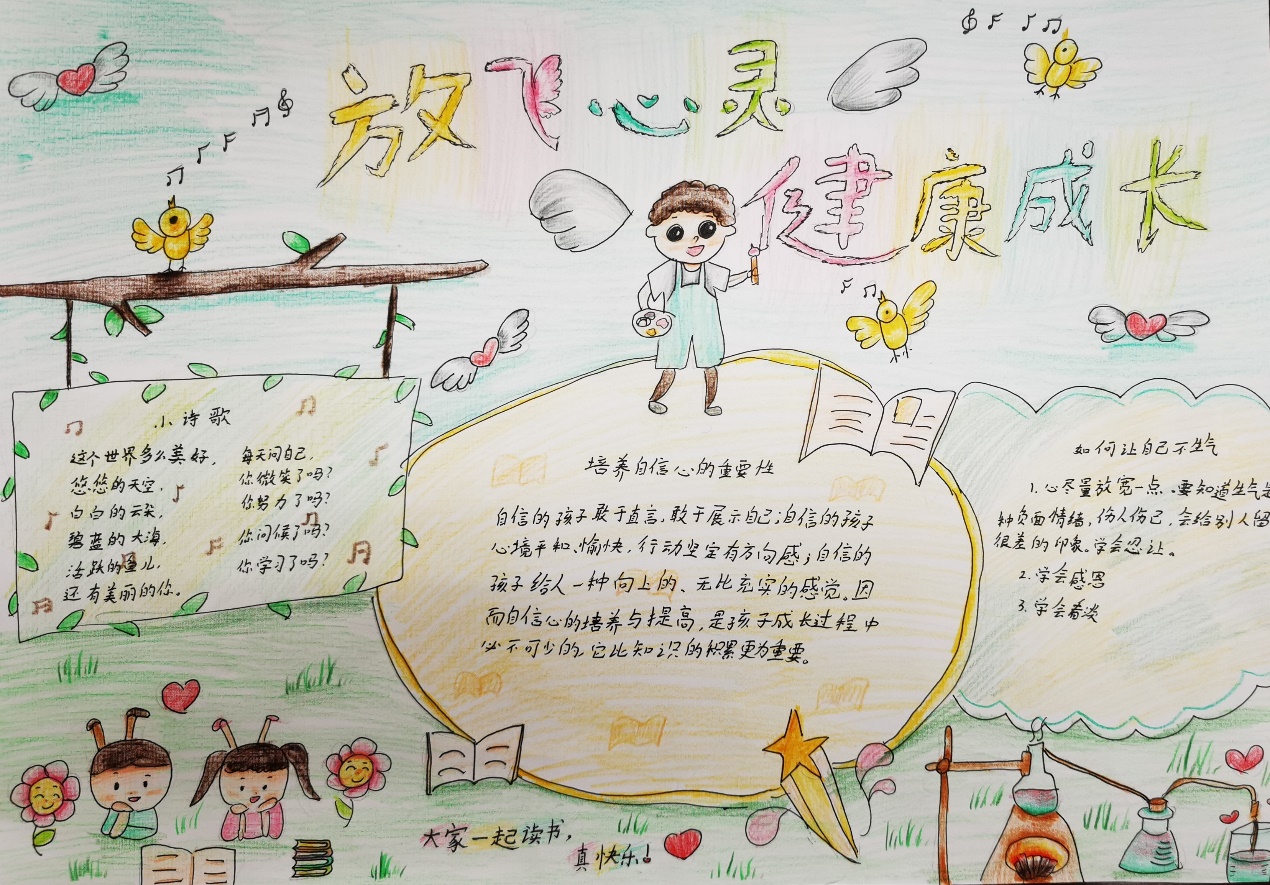 放飞心灵
健康成长
小诗歌
这个世界多么美好，
悠悠的天空，
白白的云朵，
碧蓝的大海，
活跃的鱼儿，
还有美丽的你。
每天问自己，
你微笑了吗？
你努力了吗？
你问候了吗？
你学习了吗？
培养自信心的重要性
自信的孩子敢于直言，敢于展示自己；自信的孩子
心境平和、愉快，行动坚定有方向感；自信的
孩子给人一种向上的、无比充实的感觉。因
而自信心的培养与提高，是孩子成长过程中
必不可少的，它比知识的积累更为重要。
如何让自己不生气
1.心尽量放宽一点、要知道生气是
种负面情绪，伤人伤己，会给别人留
很差的印象。学会忍让。
2.学会感恩
3.学会看淡
大家一起读书，
真快乐！